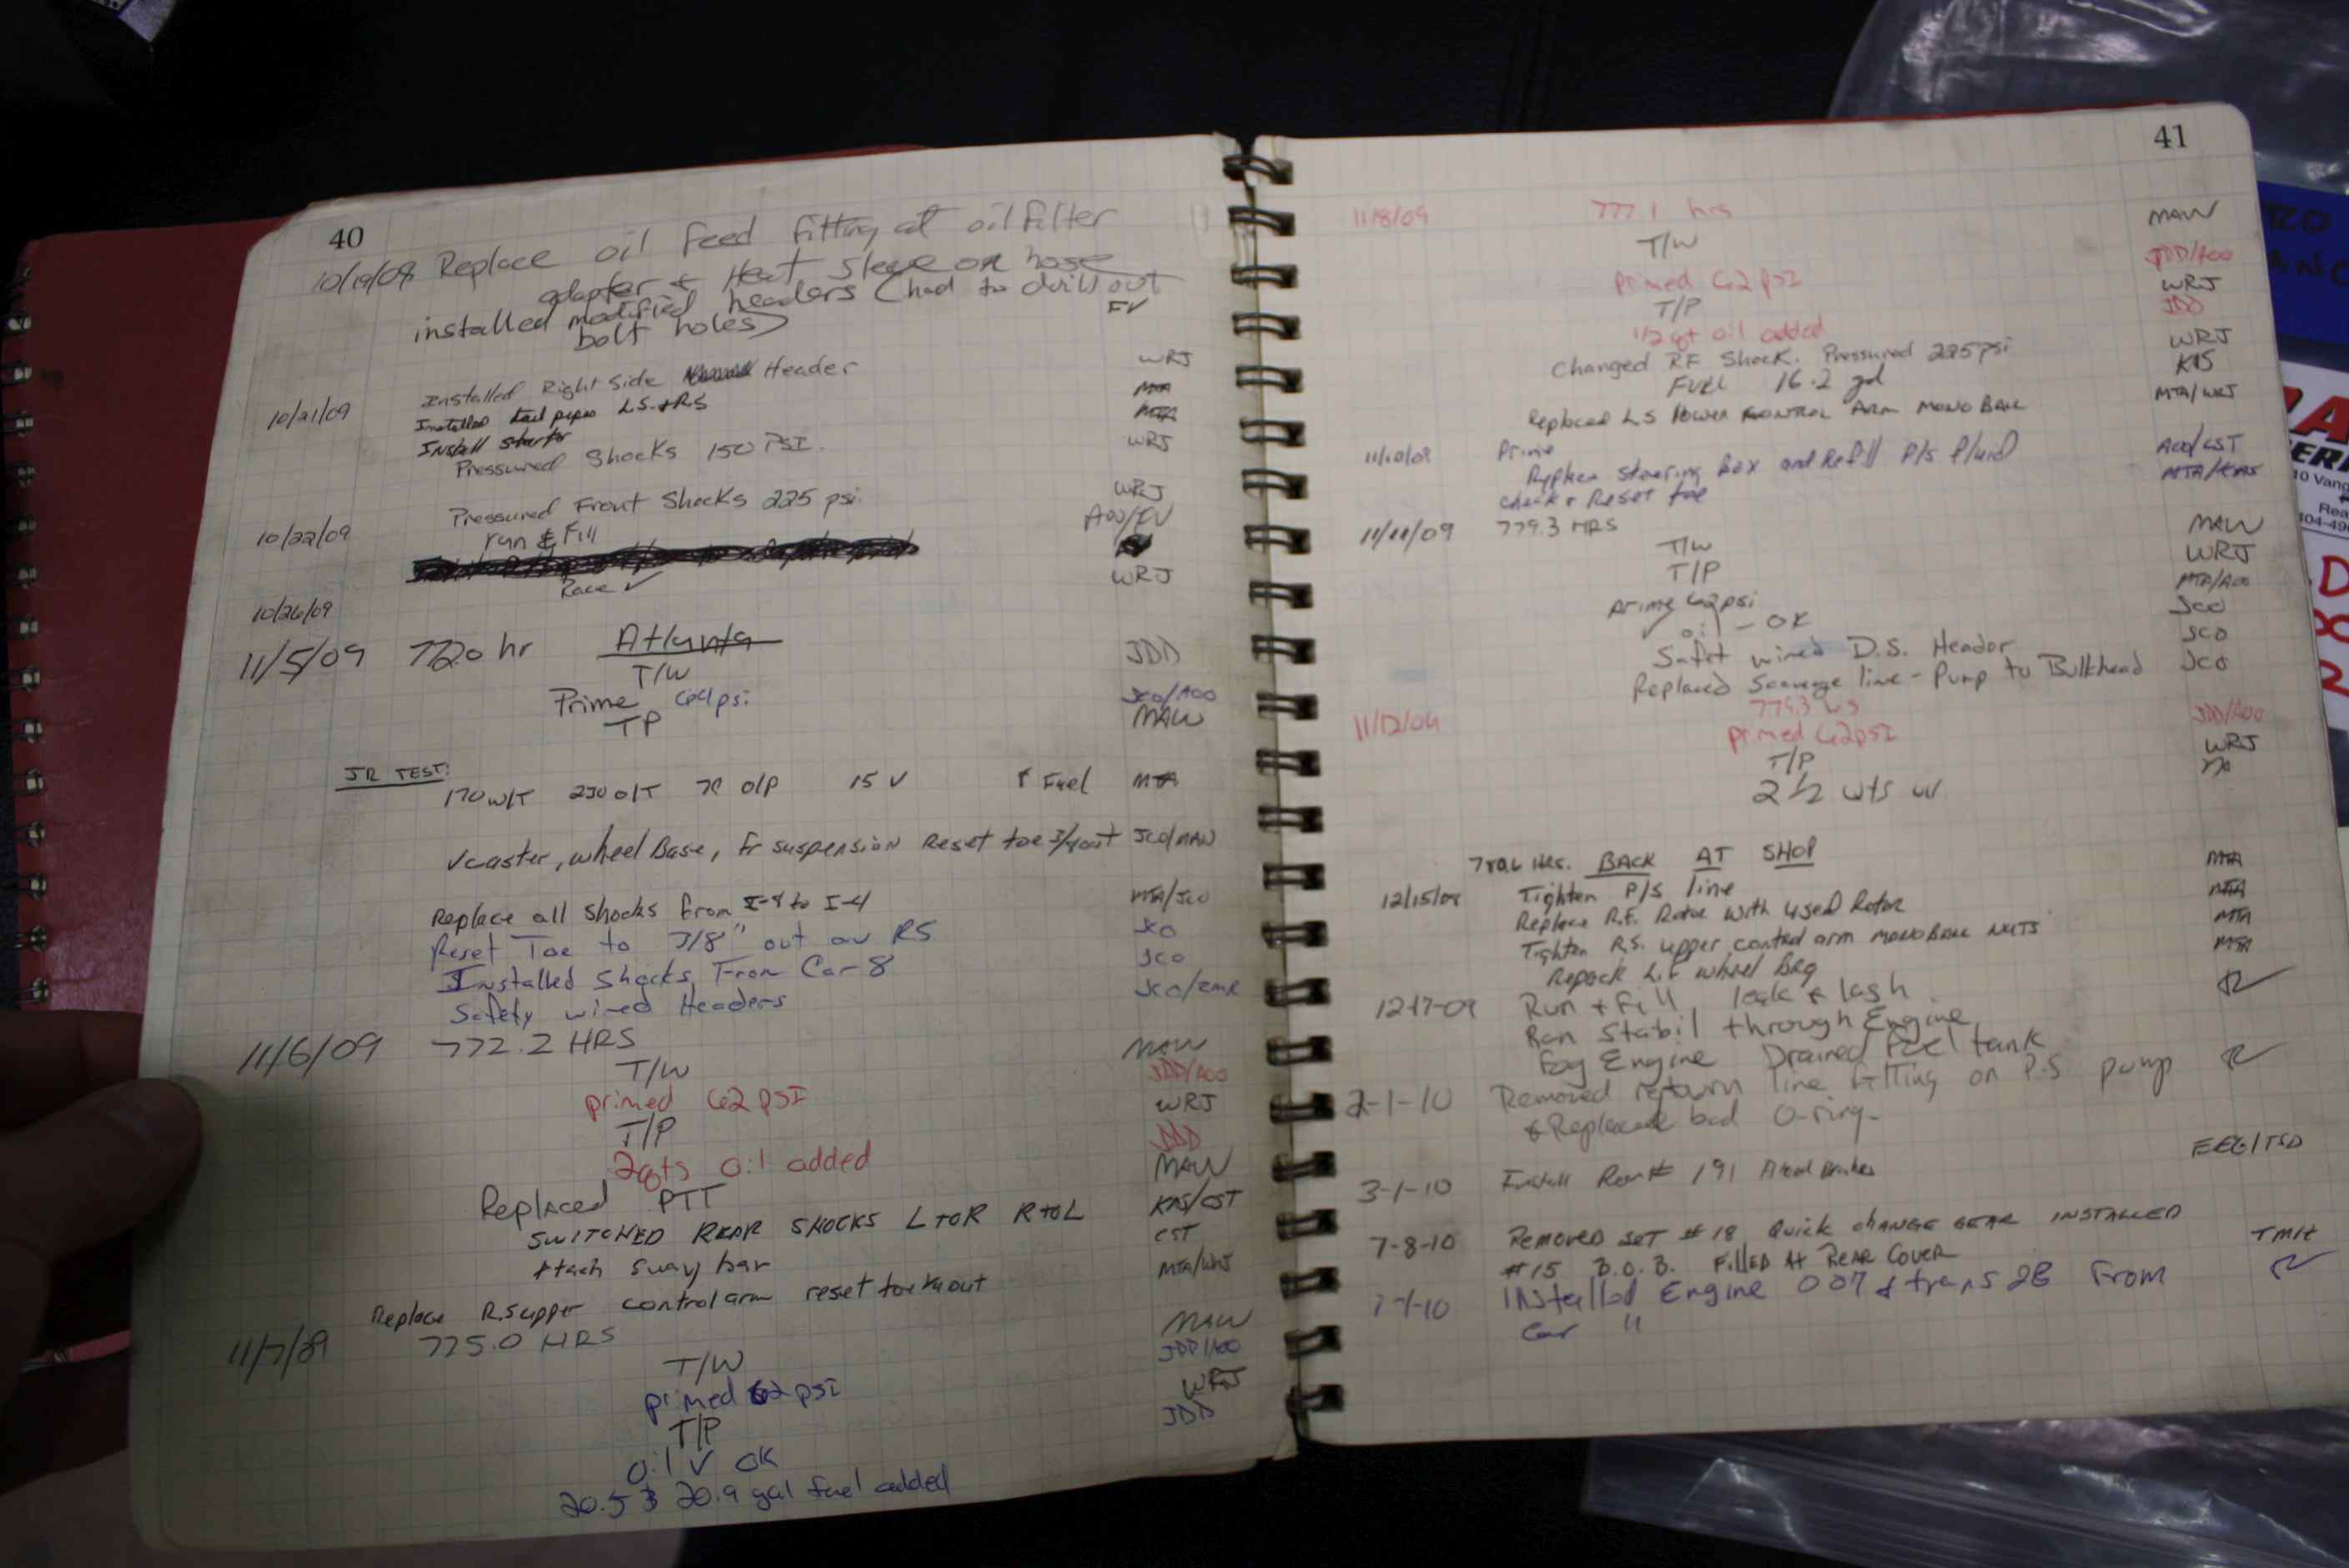 40
10/19/09 Replace oil feed fitting at oil filter
adapter + Heat sleeve on hose
installed modified headers (had to drill out
bolt holes) FV
Installed Right Side Header WRJ
10/21/09 Installed tail pipes LS.+RS MTA
Install starter MTA
Pressured Shocks 150 PSI. WRJ
Pressured Front Shocks 225 psi. WRJ
10/22/09 run & Fill AOO/FV
Race ✓ WRJ
10/26/09
11/5/09 772.0 hr Atlanta
T/W JDD
Prime 64psi JCO/AOO
TP MAW
JR TEST:
170 W/T 230 O/T 78 O/P 15 V Fuel MTA
✓caster, wheel Base, fr suspension Reset toe out JCO/MAW
Replace all shocks from I-8 to I-4 MTA/JCO
Reset Toe to 3/8" out on RS JCO
Installed Shocks From Car-8 JCO
Safety wired Headers JCO/RMR
11/6/09 772.2 HRS
T/W MAW
primed 62 PSI JDD/AOO
T/P WRJ
2qts oil added JDD
Replaced PTT MAW
SWITCHED REAR SHOCKS L to R R to L KAS/CST
Attach sway bar CST
Replace R.S upper control arm reset toe out MTA/WRJ
11/7/09 775.0 HRS
T/W MAW
primed 62 psi JDD/AOO
T/P WRJ
oil ✓ ok JDD
20.5 & 20.9 gal fuel added
41
11/8/09 777.1 hrs
T/W MAW
primed 62psi JDD/AOO
T/P WRJ
1/2 qt oil added JDD
Changed RF Shock. Pressured 225psi WRJ
FUEL 16.2 gal KAS
Replaced LS lower control Arm mono Ball MTA/WRJ
11/10/09 Prime AOO/CST
Replace steering Box and Refill P/s fluid MTA/KAS
check & Reset toe
11/11/09 779.3 HRS
T/W MAW
T/P WRJ
prime 62psi MTA/AOO
✓ oil - OK JCO
Safety wired D.S. Header JCO
Replaced Scavenge line - Pump to Bulkhead JCO
11/12/09 779.3 hrs
primed 62psi JDD/AOO
T/P WRJ
2 1/2
780.6 Hrs. BACK AT SHOP
12/15/09 Tighten P/S line MTA
Replace R.F. Rotor with used Rotor MTA
Tighten R.S. upper control arm mono Ball nuts MTA
Repack L.F wheel Brg MTA
12-17-09 Run + fill leak & lash
Ran Stabil through Engine
Fog Engine Drained fuel tank
2-1-10 Removed return line fitting on P.S pump
& Replaced bad O-ring-
3-1-10 Install Rear # 191 EEG/TSD
7-8-10 Removed SET # 18 Quick CHANGE GEAR INSTALLED
#15 B.O.B. FILLED AT REAR COVER TMH
Installed Engine 007 & trans 28 From
Car 11